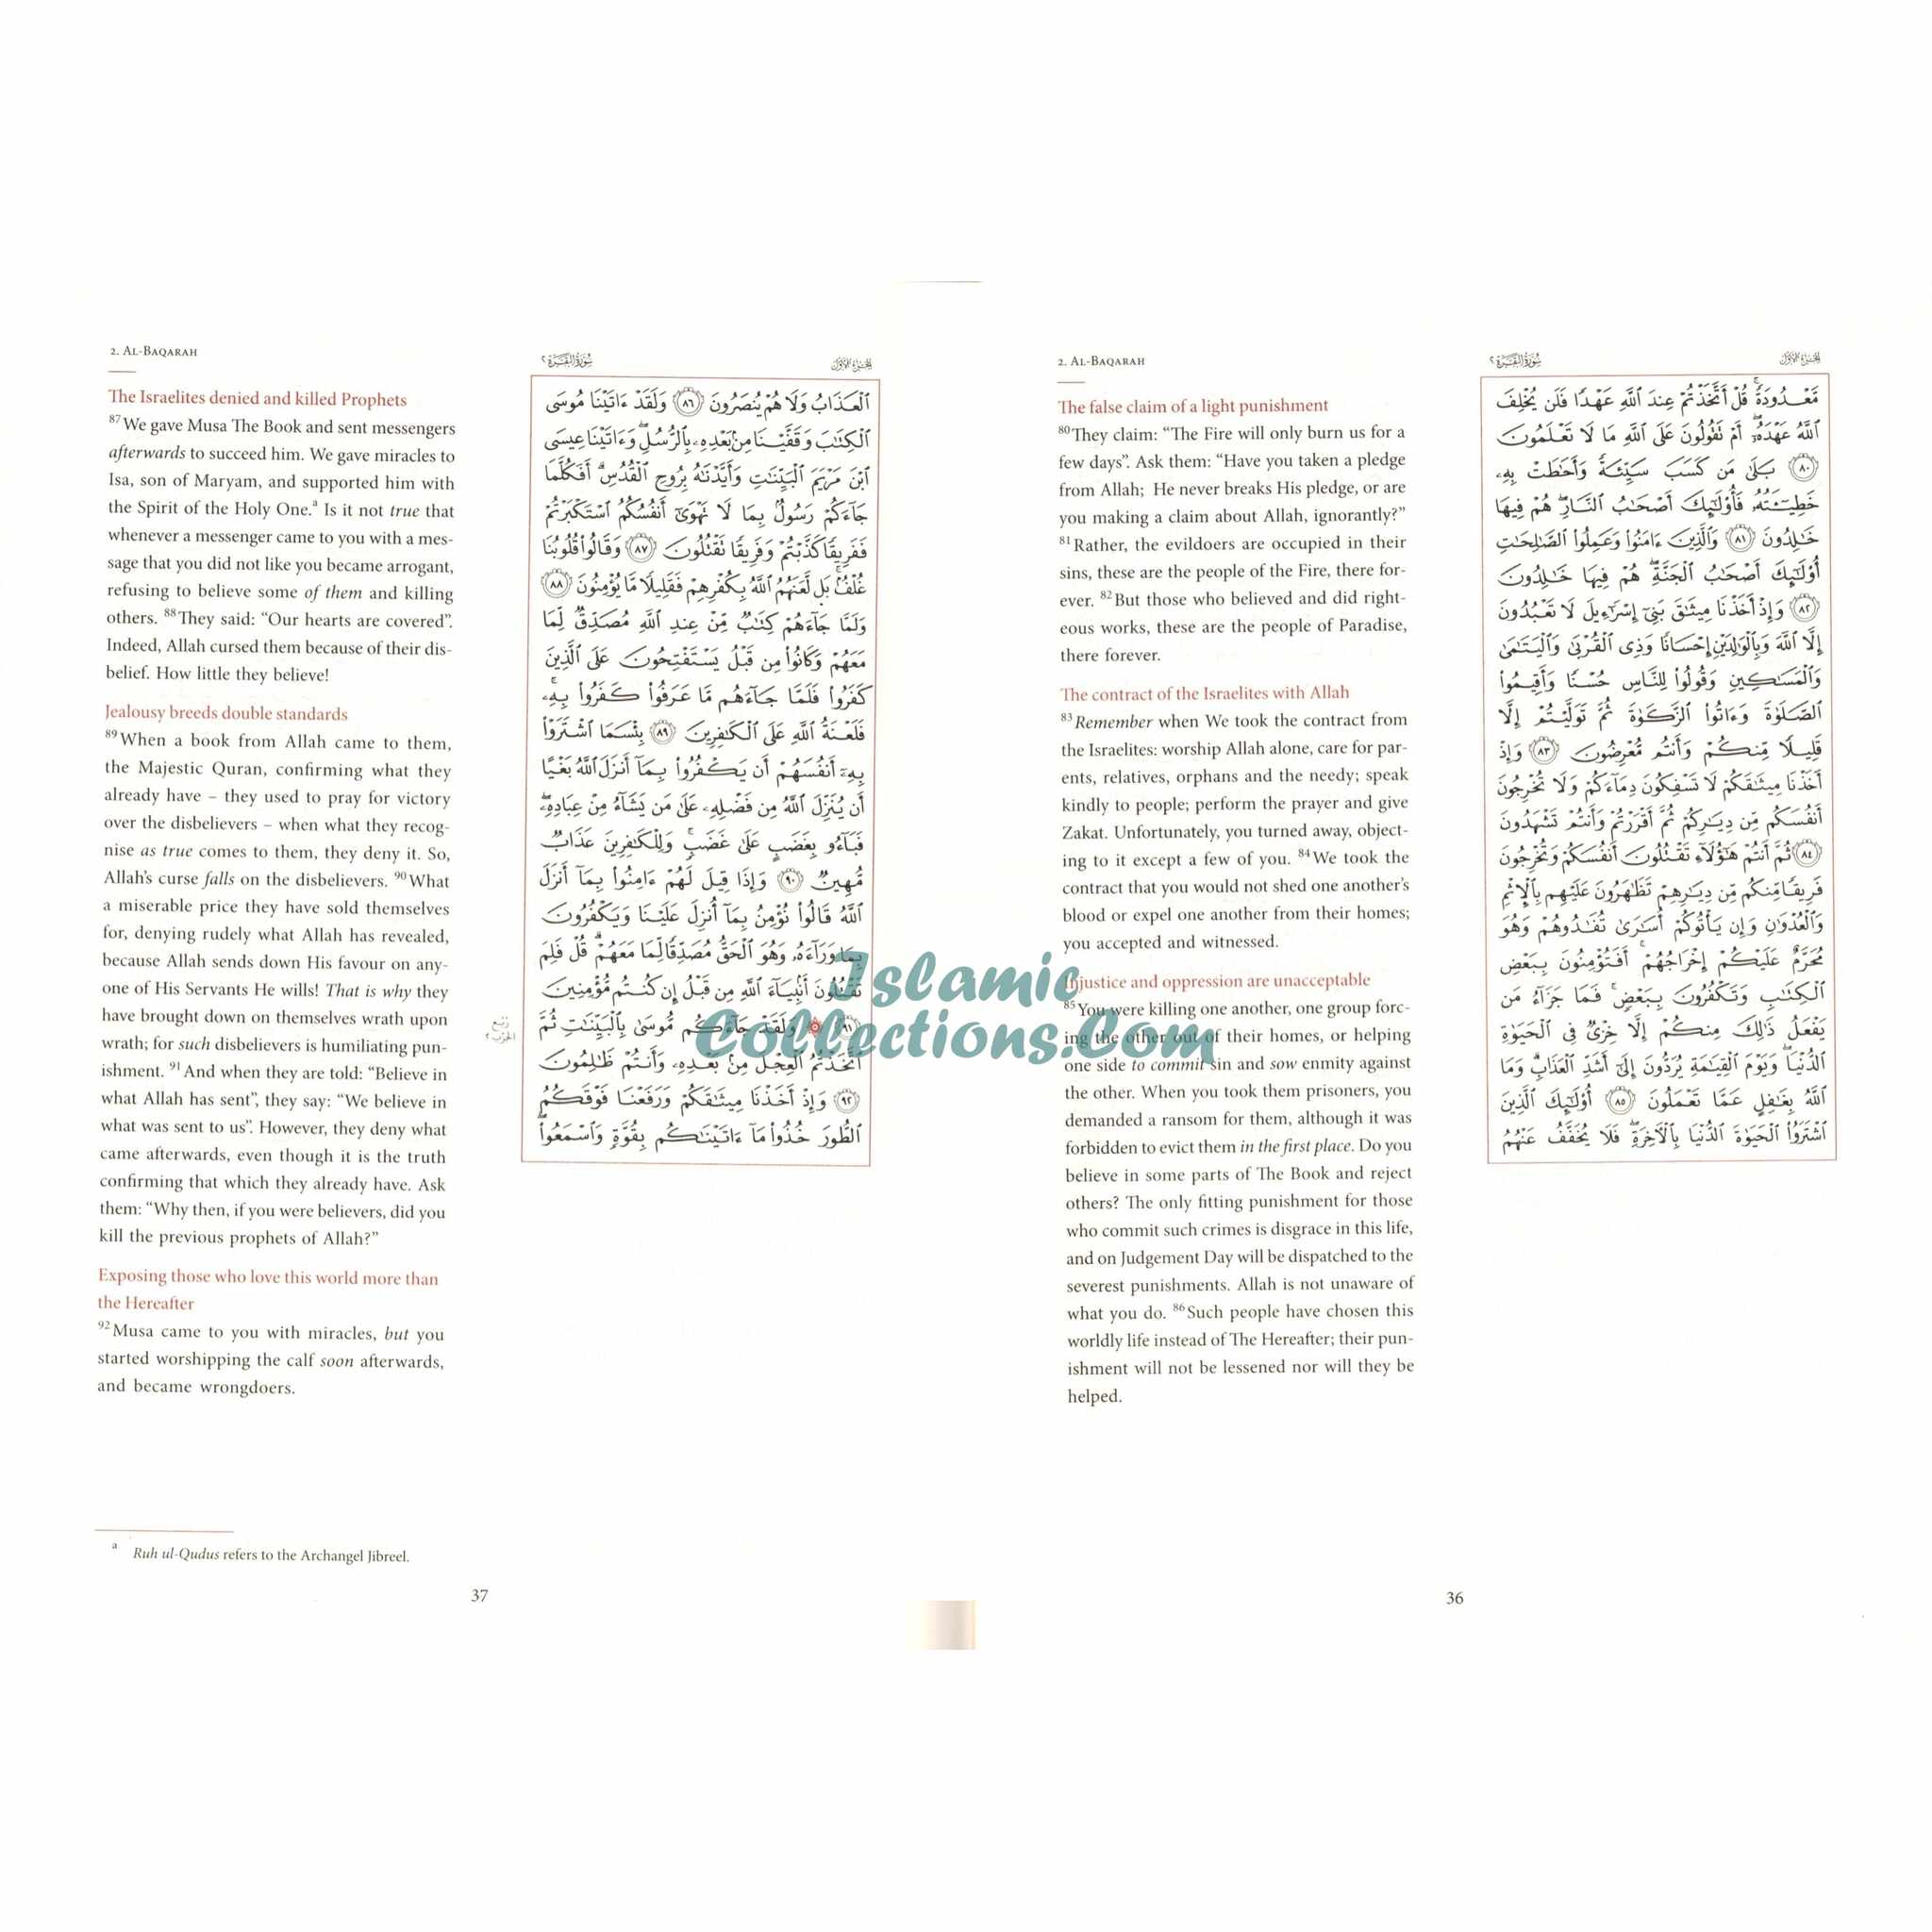 2. AL-BAQARAH
The false claim of a light punishment
⁸⁰They claim: “The Fire will only burn us for a
few days”. Ask them: “Have you taken a pledge
from Allah; He never breaks His pledge, or are
you making a claim about Allah, ignorantly?”
⁸¹Rather, the evildoers are occupied in their
sins, these are the people of the Fire, there for-
ever. ⁸²But those who believed and did right-
eous works, these are the people of Paradise,
there forever.
The contract of the Israelites with Allah
⁸³Remember when We took the contract from
the Israelites: worship Allah alone, care for par-
ents, relatives, orphans and the needy; speak
kindly to people; perform the prayer and give
Zakat. Unfortunately, you turned away, object-
ing to it except a few of you. ⁸⁴We took the
contract that you would not shed one another’s
blood or expel one another from their homes;
you accepted and witnessed.
Injustice and oppression are unacceptable
⁸⁵You were killing one another, one group forc-
ing the other out of their homes, or helping
one side to commit sin and sow enmity against
the other. When you took them prisoners, you
demanded a ransom for them, although it was
forbidden to evict them in the first place. Do you
believe in some parts of The Book and reject
others? The only fitting punishment for those
who commit such crimes is disgrace in this life,
and on Judgement Day will be dispatched to the
severest punishments. Allah is not unaware of
what you do. ⁸⁶Such people have chosen this
worldly life instead of The Hereafter; their pun-
ishment will not be lessened nor will they be
helped.
الجزء الأول سورة البقرة ٢
مَّعْدُودَةً ۚ قُلْ أَتَّخَذْتُمْ عِندَ اللَّهِ عَهْدًا فَلَن يُخْلِفَ
اللَّهُ عَهْدَهُ ۖ أَمْ تَقُولُونَ عَلَى اللَّهِ مَا لَا تَعْلَمُونَ
﴿٨٠﴾ بَلَىٰ مَن كَسَبَ سَيِّئَةً وَأَحَاطَتْ بِهِ
خَطِيٓـَٔتُهُ فَأُولَٰئِكَ أَصْحَابُ النَّارِ ۖ هُمْ فِيهَا
خَالِدُونَ ﴿٨١﴾ وَالَّذِينَ ءَامَنُوا وَعَمِلُوا الصَّالِحَاتِ
أُولَٰئِكَ أَصْحَابُ الْجَنَّةِ ۖ هُمْ فِيهَا خَالِدُونَ
﴿٨٢﴾ وَإِذْ أَخَذْنَا مِيثَاقَ بَنِي إِسْرَائِيلَ لَا تَعْبُدُونَ
إِلَّا اللَّهَ وَبِالْوَالِدَيْنِ إِحْسَانًا وَذِي الْقُرْبَىٰ وَالْيَتَامَىٰ
وَالْمَسَاكِينِ وَقُولُوا لِلنَّاسِ حُسْنًا وَأَقِيمُوا
الصَّلَوٰةَ وَءَاتُوا الزَّكَوٰةَ ثُمَّ تَوَلَّيْتُمْ إِلَّا
قَلِيلًا مِّنكُمْ وَأَنتُم مُّعْرِضُونَ ﴿٨٣﴾ وَإِذْ
أَخَذْنَا مِيثَاقَكُمْ لَا تَسْفِكُونَ دِمَاءَكُمْ وَلَا تُخْرِجُونَ
أَنفُسَكُم مِّن دِيَارِكُمْ ثُمَّ أَقْرَرْتُمْ وَأَنتُمْ تَشْهَدُونَ
﴿٨٤﴾ ثُمَّ أَنتُمْ هَٰؤُلَاءِ تَقْتُلُونَ أَنفُسَكُمْ وَتُخْرِجُونَ
فَرِيقًا مِّنكُم مِّن دِيَارِهِمْ تَظَاهَرُونَ عَلَيْهِم بِالْإِثْمِ
وَالْعُدْوَانِ وَإِن يَأْتُوكُمْ أُسَارَىٰ تُفَادُوهُمْ وَهُوَ
مُحَرَّمٌ عَلَيْكُمْ إِخْرَاجُهُمْ ۚ أَفَتُؤْمِنُونَ بِبَعْضِ
الْكِتَابِ وَتَكْفُرُونَ بِبَعْضٍ ۚ فَمَا جَزَاءُ مَن
يَفْعَلُ ذَٰلِكَ مِنكُمْ إِلَّا خِزْيٌ فِي الْحَيَوٰةِ
الدُّنْيَا ۖ وَيَوْمَ الْقِيَامَةِ يُرَدُّونَ إِلَىٰ أَشَدِّ الْعَذَابِ ۗ وَمَا
اللَّهُ بِغَافِلٍ عَمَّا تَعْمَلُونَ ﴿٨٥﴾ أُولَٰئِكَ الَّذِينَ
اشْتَرَوُا الْحَيَوٰةَ الدُّنْيَا بِالْآخِرَةِ ۖ فَلَا يُخَفَّفُ عَنْهُمُ
36
2. AL-BAQARAH
The Israelites denied and killed Prophets
⁸⁷We gave Musa The Book and sent messengers
afterwards to succeed him. We gave miracles to
Isa, son of Maryam, and supported him with
the Spirit of the Holy One.ᵃ Is it not true that
whenever a messenger came to you with a mes-
sage that you did not like you became arrogant,
refusing to believe some of them and killing
others. ⁸⁸They said: “Our hearts are covered”.
Indeed, Allah cursed them because of their dis-
belief. How little they believe!
Jealousy breeds double standards
⁸⁹When a book from Allah came to them,
the Majestic Quran, confirming what they
already have – they used to pray for victory
over the disbelievers – when what they recog-
nise as true comes to them, they deny it. So,
Allah’s curse falls on the disbelievers. ⁹⁰What
a miserable price they have sold themselves
for, denying rudely what Allah has revealed,
because Allah sends down His favour on any-
one of His Servants He wills! That is why they
have brought down on themselves wrath upon
wrath; for such disbelievers is humiliating pun-
ishment. ⁹¹And when they are told: “Believe in
what Allah has sent”, they say: “We believe in
what was sent to us”. However, they deny what
came afterwards, even though it is the truth
confirming that which they already have. Ask
them: “Why then, if you were believers, did you
kill the previous prophets of Allah?”
Exposing those who love this world more than
the Hereafter
⁹²Musa came to you with miracles, but you
started worshipping the calf soon afterwards,
and became wrongdoers.
الجزء الأول سورة البقرة ٢
الْعَذَابُ وَلَا هُمْ يُنصَرُونَ ﴿٨٦﴾ وَلَقَدْ ءَاتَيْنَا مُوسَى
الْكِتَابَ وَقَفَّيْنَا مِن بَعْدِهِ بِالرُّسُلِ ۖ وَءَاتَيْنَا عِيسَى
ابْنَ مَرْيَمَ الْبَيِّنَاتِ وَأَيَّدْنَاهُ بِرُوحِ الْقُدُسِ ۗ أَفَكُلَّمَا
جَاءَكُمْ رَسُولٌ بِمَا لَا تَهْوَىٰ أَنفُسُكُمُ اسْتَكْبَرْتُمْ
فَفَرِيقًا كَذَّبْتُمْ وَفَرِيقًا تَقْتُلُونَ ﴿٨٧﴾ وَقَالُوا قُلُوبُنَا
غُلْفٌ ۚ بَل لَّعَنَهُمُ اللَّهُ بِكُفْرِهِمْ فَقَلِيلًا مَّا يُؤْمِنُونَ ﴿٨٨﴾
وَلَمَّا جَاءَهُمْ كِتَابٌ مِّنْ عِندِ اللَّهِ مُصَدِّقٌ لِّمَا
مَعَهُمْ وَكَانُوا مِن قَبْلُ يَسْتَفْتِحُونَ عَلَى الَّذِينَ
كَفَرُوا فَلَمَّا جَاءَهُم مَّا عَرَفُوا كَفَرُوا بِهِ ۚ
فَلَعْنَةُ اللَّهِ عَلَى الْكَافِرِينَ ﴿٨٩﴾ بِئْسَمَا اشْتَرَوْا
بِهِ أَنفُسَهُمْ أَن يَكْفُرُوا بِمَا أَنزَلَ اللَّهُ بَغْيًا
أَن يُنَزِّلَ اللَّهُ مِن فَضْلِهِ عَلَىٰ مَن يَشَاءُ مِنْ عِبَادِهِ ۖ
فَبَاءُو بِغَضَبٍ عَلَىٰ غَضَبٍ ۚ وَلِلْكَافِرِينَ عَذَابٌ
مُّهِينٌ ﴿٩٠﴾ وَإِذَا قِيلَ لَهُمْ ءَامِنُوا بِمَا أَنزَلَ
اللَّهُ قَالُوا نُؤْمِنُ بِمَا أُنزِلَ عَلَيْنَا وَيَكْفُرُونَ
بِمَا وَرَاءَهُ وَهُوَ الْحَقُّ مُصَدِّقًا لِّمَا مَعَهُمْ ۗ قُلْ فَلِمَ
تَقْتُلُونَ أَنبِيَاءَ اللَّهِ مِن قَبْلُ إِن كُنتُم مُّؤْمِنِينَ
﴿٩١﴾ ۞ وَلَقَدْ جَاءَكُم مُّوسَىٰ بِالْبَيِّنَاتِ ثُمَّ
اتَّخَذْتُمُ الْعِجْلَ مِن بَعْدِهِ وَأَنتُمْ ظَالِمُونَ
﴿٩٢﴾ وَإِذْ أَخَذْنَا مِيثَاقَكُمْ وَرَفَعْنَا فَوْقَكُمُ
الطُّورَ خُذُوا مَا ءَاتَيْنَاكُم بِقُوَّةٍ وَاسْمَعُوا ۖ
ᵃ Ruh ul-Qudus refers to the Archangel Jibreel.
37
Islamic
Collections.Com